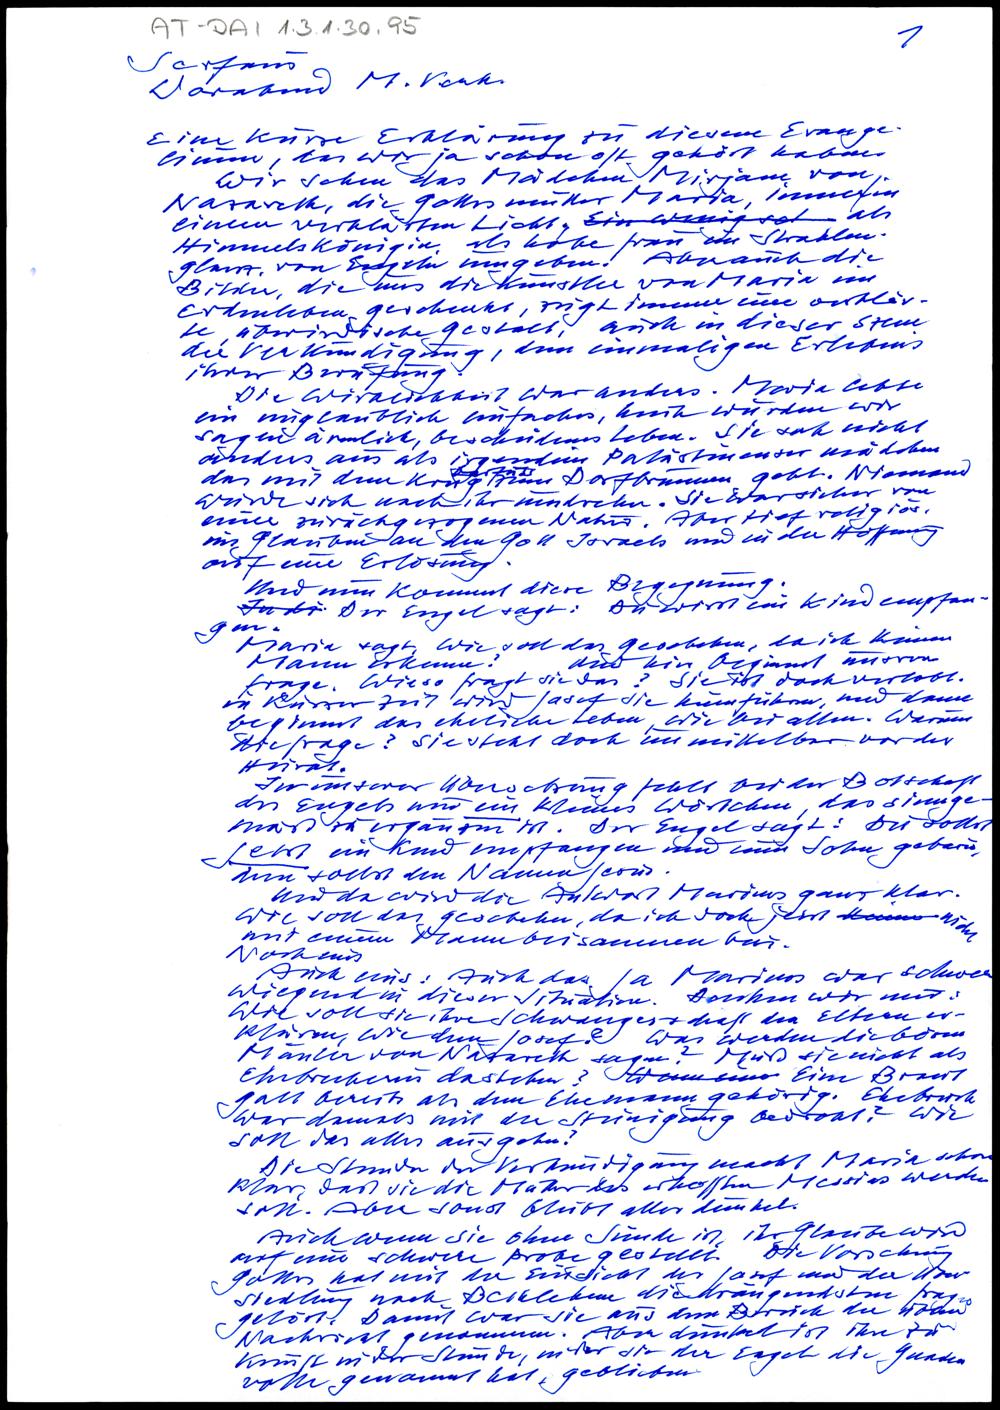 AT-DAI 1.3.1.30.95
1
Serfaus
Vorabend M. Verk.
Eine kurze Erklärung zu diesem Evange-
lium, das wir ja schon oft gehört haben
Wir sehen das Mädchen Mirjam von
Nazareth, die Gottesmutter Maria, immer in
einem verklärten Licht, Ein wenig als
Himmelskönigin, als hohe Frau im Strahlen-
glanz, von Engeln umgeben. Aber auch die
Bilder, die uns die Künstler von Maria im
Erdenleben geschenkt, zeigt immer eine verklär-
te, überirdische Gestalt, auch in dieser Szene
die Verkündigung, dem einmaligen Erlebnis
ihrer Berufung.
Die Wirklichkeit war anders. Maria lebte
ein unglaublich einfaches, heute würden wir
sagen ärmlich, bescheidenes Leben. Sie sah nicht
anders aus als irgendein Palästinenser mädchen
das mit dem Krug zum Dorfbrunnen geht. Niemand
würde sich nach ihr umdrehen. Sie war sicher von
einer zurückgezogenen Natur. Aber tief religiös.
im Glauben an den Gott Israels und in der Hoffnung
auf eine Erlösung.
Und nun kommt diese Begegnung.
Der Engel sagt: Du wirst ein Kind empfan-
gen.
Maria sagt, Wie soll das geschehen, da ich keinen
Mann erkenne? Und hier beginnt unsere
Frage. Wieso fragt sie das? Sie ist doch verlobt.
in kurzer Zeit wird Josef sie heimführen, und dann
beginnt das eheliche Leben, wie bei allen. Warum
die Frage? Sie steht doch unmittelbar vor der
Heirat.
In unserer Übersetzung fehlt bei der Botschaft
des Engels nur ein kleines Wörtchen, das sinnge-
mäß zu ergänzen ist. Der Engel sagt: Du sollst
jetzt ein Kind empfangen und einen Sohn gebären,
dem sollst den Namen Jesus.
Und da wird die Antwort Mariens ganz klar.
Wie soll das geschehen, da ich doch jetzt keinen nicht
mit einem Mann beisammen bin.
Noch eins
Auch eins: Auch das Ja Mariens war schwer
wiegend in dieser Situation. Denken wir mit:
Wie soll sie ihre Schwangerschaft den Eltern er-
klären, wie dem Josef? Was werden die bösen
Mäuler von Nazareth sagen? Muß sie nicht als
Ehebrecherin dastehen? Eine Braut
galt bereits als dem Ehemann gehörig. Ehebruch
war damals mit der Steinigung bedroht? Wie
soll das alles ausgehn?
Die Stunde der Verkündigung macht Maria schon
klar, daß sie die Mutter des erhofften Messias werden
soll. Aber sonst bleibt alles dunkel.
Auch wenn sie ohne Sünde ist, ihr Glaube wird
auf eine schwere Probe gestellt. Die Vorsehung
Gottes hat mit der Einsicht des Josef und der Über
siedlung nach Bethlehem die drängendsten Fragen
gelöst. Damit war sie aus dem Bereich der üblen
Nachricht genommen. Aber dunkel ist ihre Zu
kunft in der Stunde, in der sie der Engel die Gnaden
volle genannt hat, geblieben